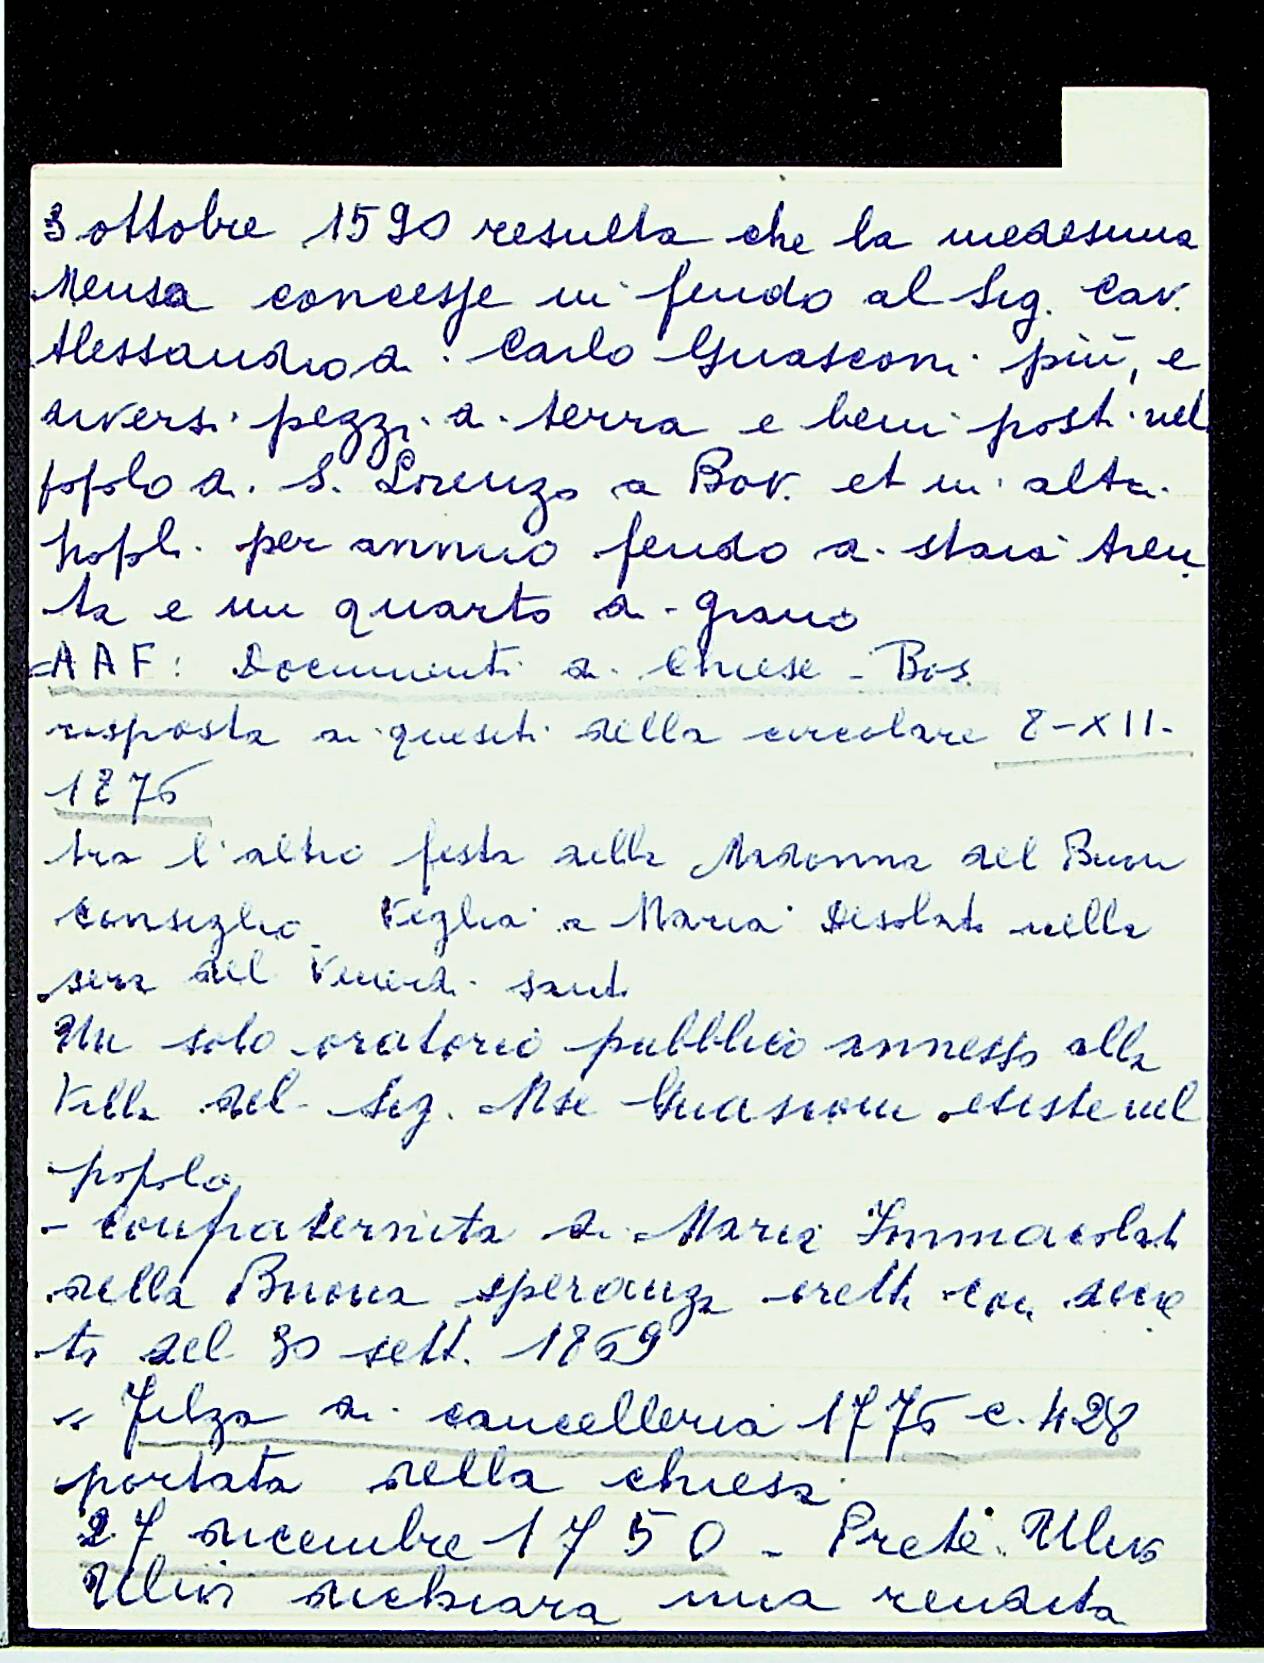 3 ottobre 1590 resulta che la medesima
Mensa concesse in feudo al Sig. Cav.
Alessandro di Carlo Guasconi più, e
diversi pezzi di terra e beni posti nel
popolo di S. Lorenzo a Bov. et in altri
popoli per annuo feudo di staia tren
ta e un quarto di grano
AAF: Documenti di Chiese - Bov.
risposta ai quesiti della circolare 8-XII-
1876
tra l'altro festa della Madonna del Buon
Consiglio Veglia a Maria Desolata nella
sera del Venerdi santo
Un solo oratorio pubblico annesso alla
Villa del Sig. Mse Guasconi esiste nel
popolo
- Confraternita di Maria Immacolata
della Buona speranza eretta con decre
to del 30 sett. 1869
" Filza di cancelleria 1776 c. 428
portata della chiesa
27 dicembre 1750 - Prete Ulivo
Ulivi dichiara una rendita